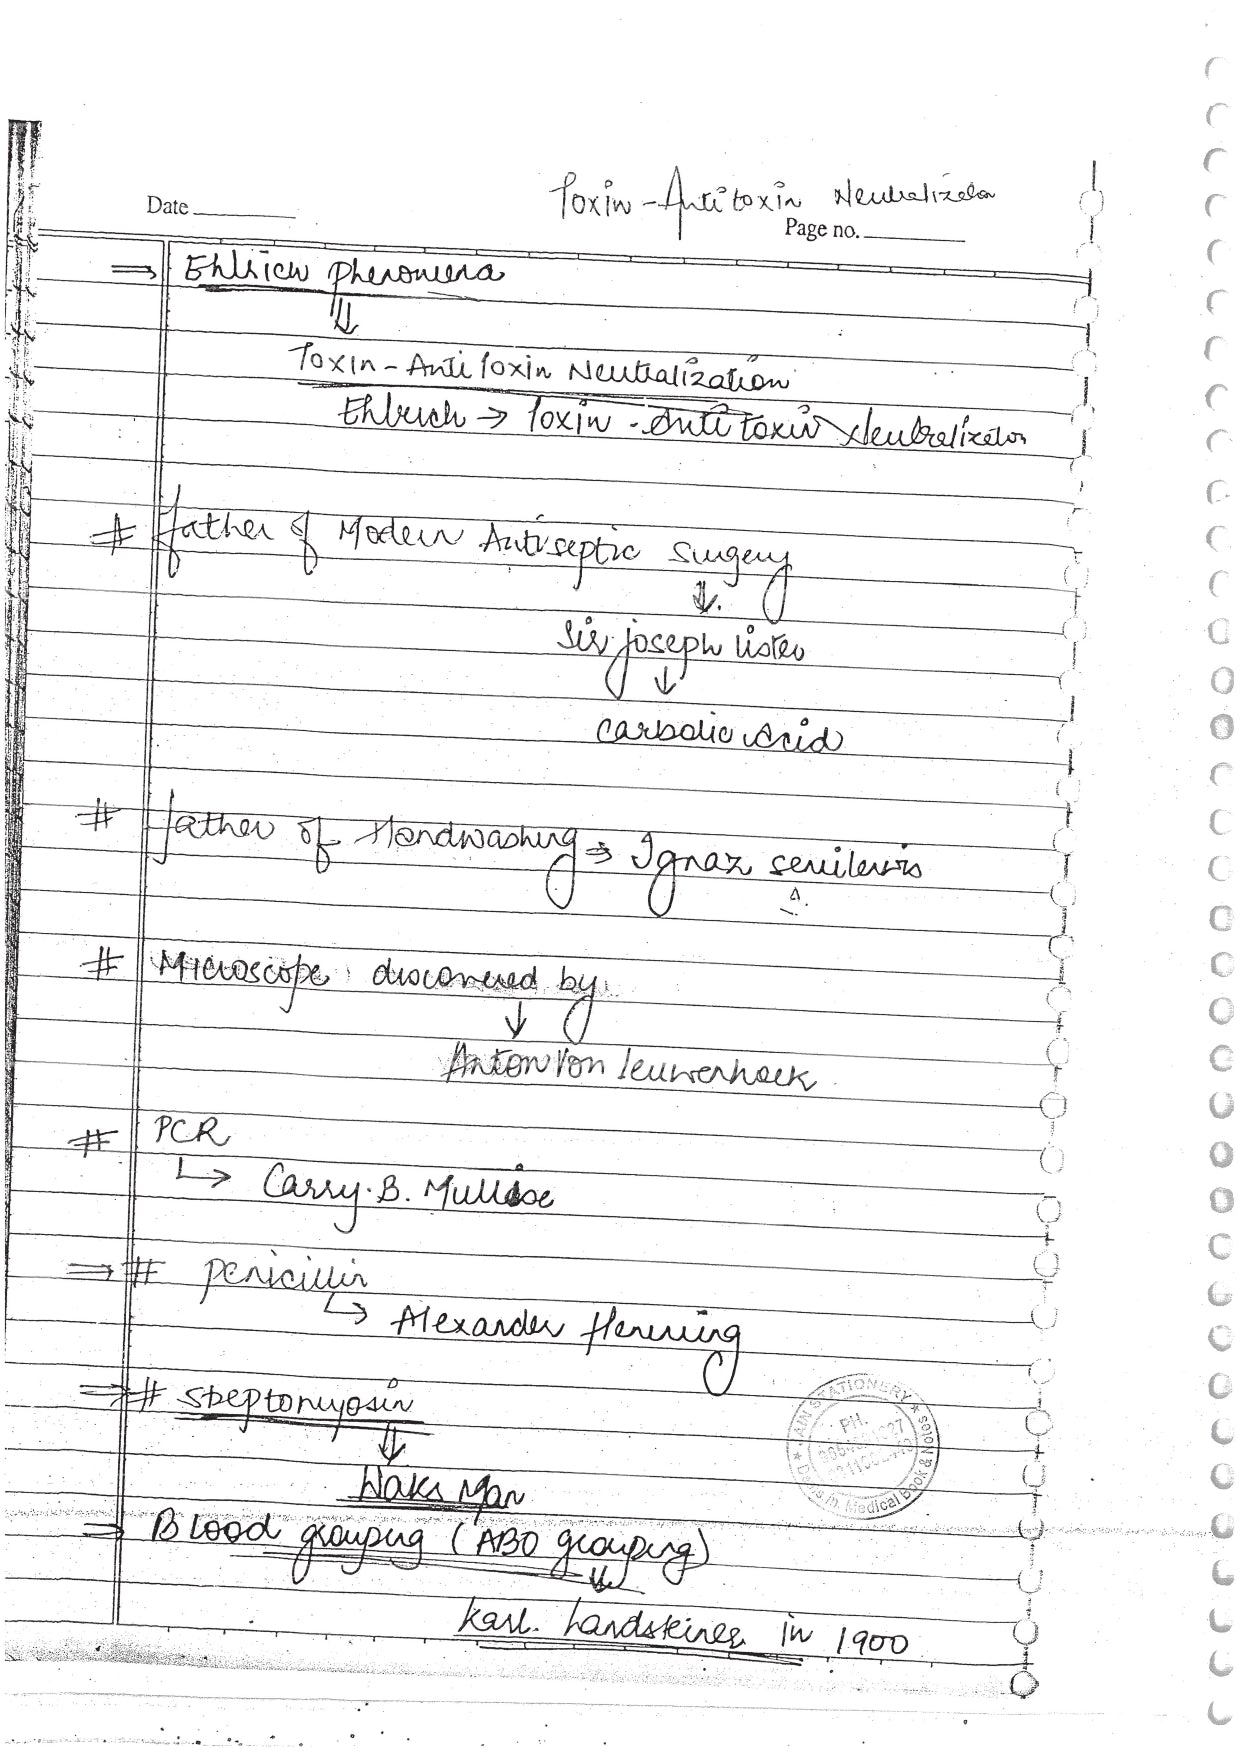 Toxin-Antitoxin Neutralization
Date
Page no.
⇒ Ehlrich phenomena
⇓
Toxin-Antitoxin Neutralization
Ehlrich → Toxin-Antitoxin Neutralization
# Father of Modern Antiseptic surgery
↓
Sir joseph lister
↓
Carbolic Acid
# Father of Handwashing ⇒ Ignaz
# Microscope discovered by
↓
Anton Von leuwenhoek
# PCR
↳ Carry. B. Mullise
⇒ # penicillin
↳ Alexander Flemming
⇒ # streptomyosin
⇓
Waks Man
⇒ Blood grouping (ABO grouping)
⇓
Karl. Landsteiner in 1900
AIN STATIONERY
PH.
Medical Book & Notes